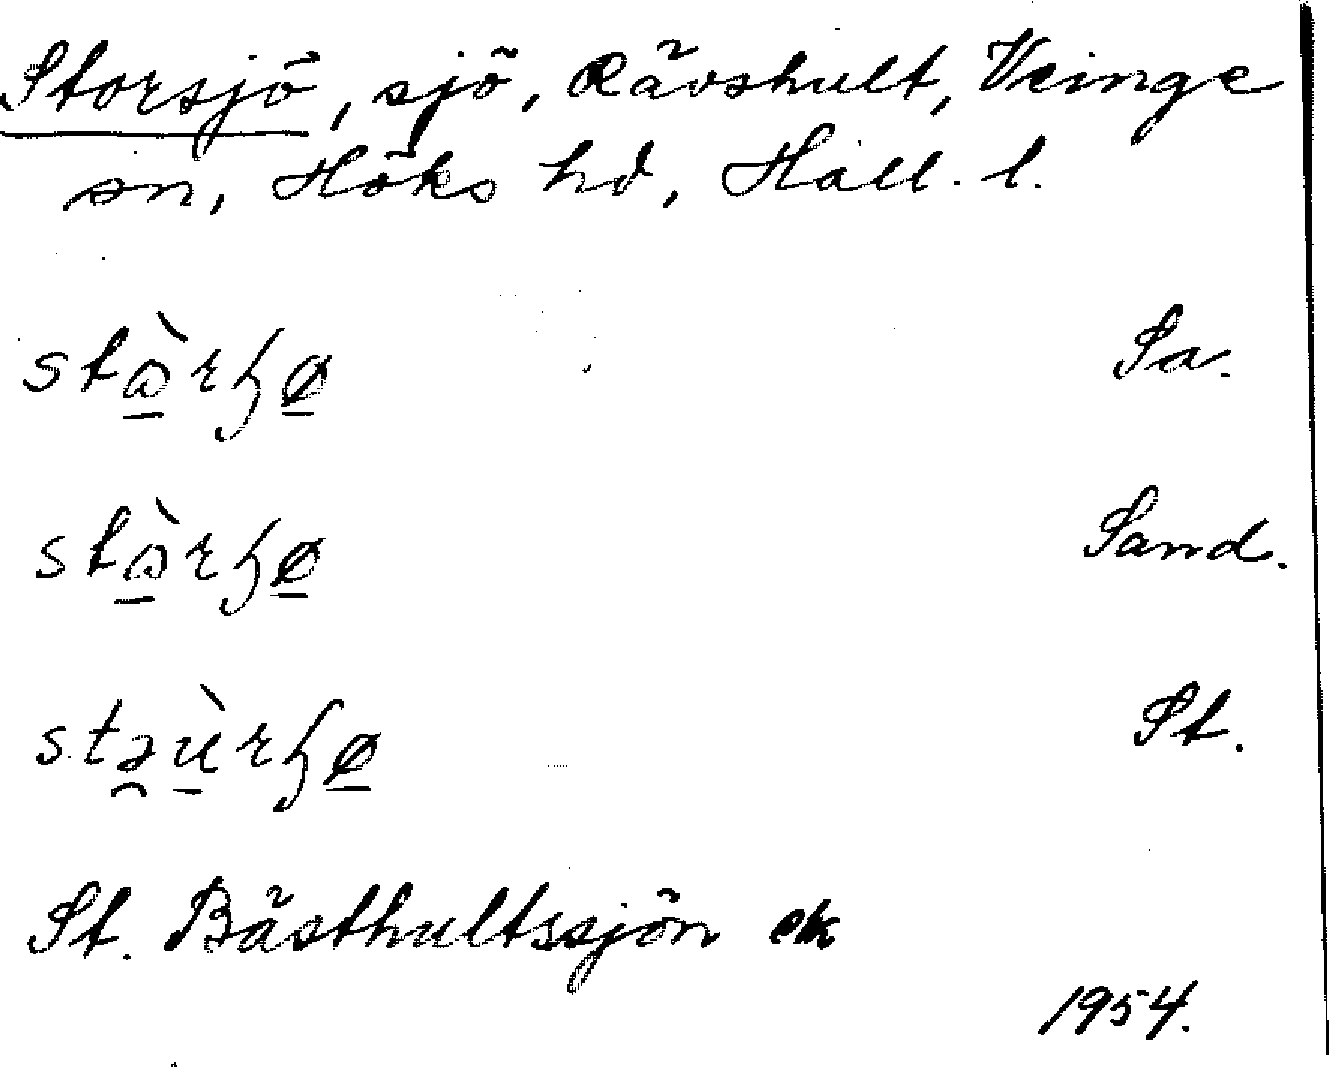 Storsjö, sjö, Rävshult, Veinge
sn, Höks hd, Hall. l.
stὼ̱rɧø̱ Sa.
stὼ̱rɧø̱ Sand.
stə̯ṳ̀rɧø̱ St.
St. Bästhultssjön ek
1954.